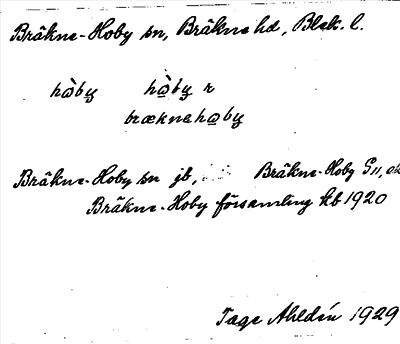 Bräkne-Hoby sn, Bräkne hd, Blek. l.
hò̱by hò̱by r
brækneho̱by
Bräkne-Hoby sn jb, Bräkne-Hoby G11,
Bräkne-Hoby församling kb 1920
Tage Ahldén 1929